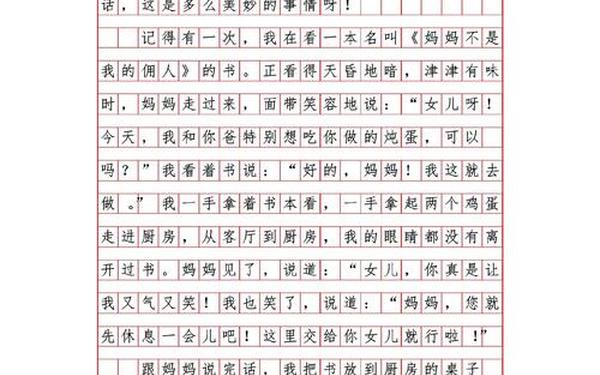 话，这是多么美妙的事情呀！
记得有一次，我在看一本名叫《妈妈不是
我的佣人》的书。正看得天昏地暗，津津有味
时，妈妈走过来，面带笑容地说：“女儿呀！
今天，我和你爸特别想吃你做的炖蛋，可以
吗？”我看着书说：“好的，妈妈！我这就去
做。”我一手拿着书本看，一手拿起两个鸡蛋
走进厨房，从客厅到厨房，我的眼睛都没有离
开过书。妈妈见了，说道：“女儿，你真是让
我又气又笑！我也笑了，说道：“妈妈，您就
先休息一会儿吧！这里交给你女儿就行啦！”
跟妈妈说完话，我把书放到厨房的桌子